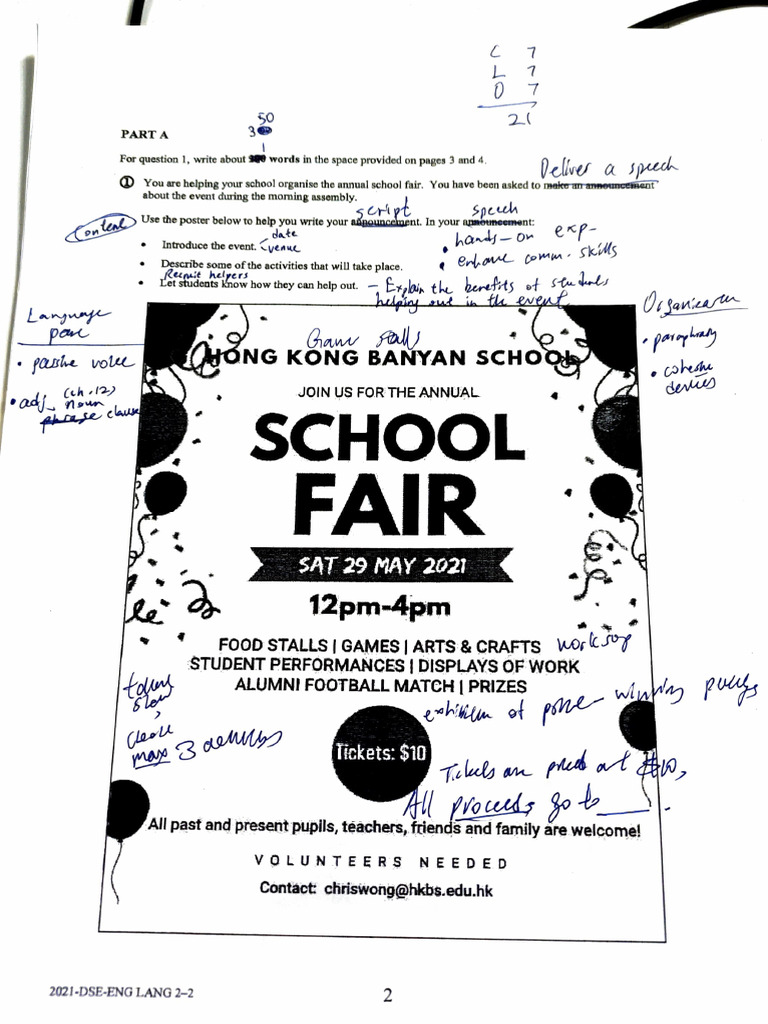 C 7
L 7
O 7
21
50
3
PART A
1
For question 1, write about words in the space provided on pages 3 and 4.
Deliver a speech
1 You are helping your school organise the annual school fair. You have been asked to make an announcement
about the event during the morning assembly.
script speech
Content Use the poster below to help you write your announcement. In your announcement:
date
• Introduce the event. venue
• hands-on exp-
• Describe some of the activities that will take place.
• enhance comm. skills
Recruit helpers
• Let students know how they can help out. - Explain the benefits of students
helping out in the event
Language
• passive voice
• adj (ch.12)
noun
phrase clause
• paraphrasing
• cohesive
devices
Game stalls
HONG KONG BANYAN SCHOOL
JOIN US FOR THE ANNUAL
SCHOOL
FAIR
SAT 29 MAY 2021
12pm-4pm
FOOD STALLS | GAMES | ARTS & CRAFTS workshop
STUDENT PERFORMANCES | DISPLAYS OF WORK
ALUMNI FOOTBALL MATCH | PRIZES
exhibition of prize-winning
talent
show,
max 3
Tickets: $10
Tickets are priced at $10,
All process go to ____.
All past and present pupils, teachers, friends and family are welcome!
VOLUNTEERS NEEDED
Contact: chriswong@hkbs.edu.hk
2021-DSE-ENG LANG 2-2
2